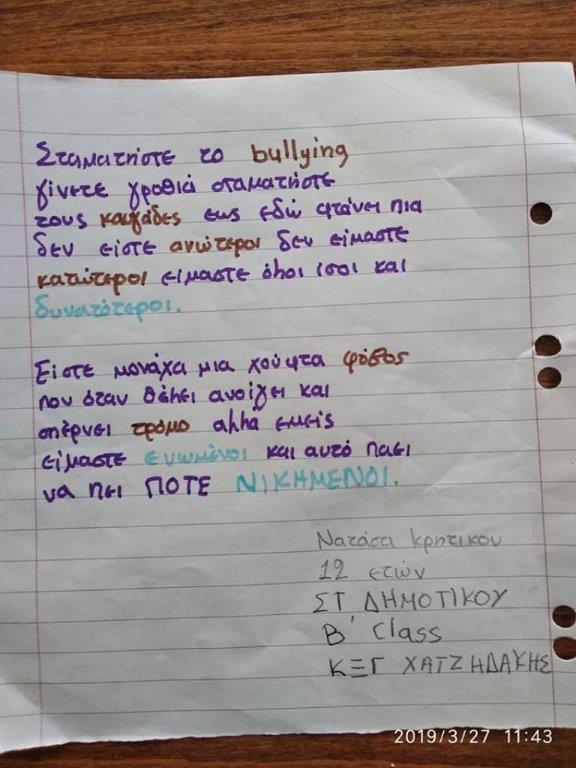 Σταματήστε το bullying
γίνετε γροθιά σταματήστε
τους καυγάδες εως εδώ φτάνει πια
δεν είστε ανώτεροι δεν είμαστε
κατώτεροι είμαστε όλοι ίσοι και
δυνατότεροι.
Είστε μονάχα μια χούφτα φόβος
που όταν θέλει ανοίγει και
σπέρνει τρόμο αλλά εμείς
είμαστε ενωμένοι και αυτό πάει
να πει ΠΟΤΕ ΝΙΚΗΜΕΝΟΙ.
Νατάσα Κρητικου
12 ετών
ΣΤ ΔΗΜΟΤΙΚΟΥ
Β' Class
ΚΞΓ ΧΑΤΖΗΔΑΚΗΣ
2019/3/27 11:43